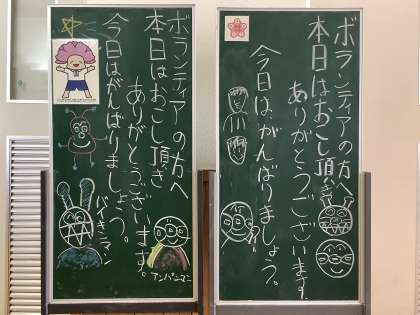 ボランティアの方へ
本日はおこし頂き
ありがとうございます。
今日はがんばりましょう。
バイキンマン
アンパンマン
ボランティアの方へ
本日はおこし頂き
ありがとうございます。
今日は、がんばりましょう。